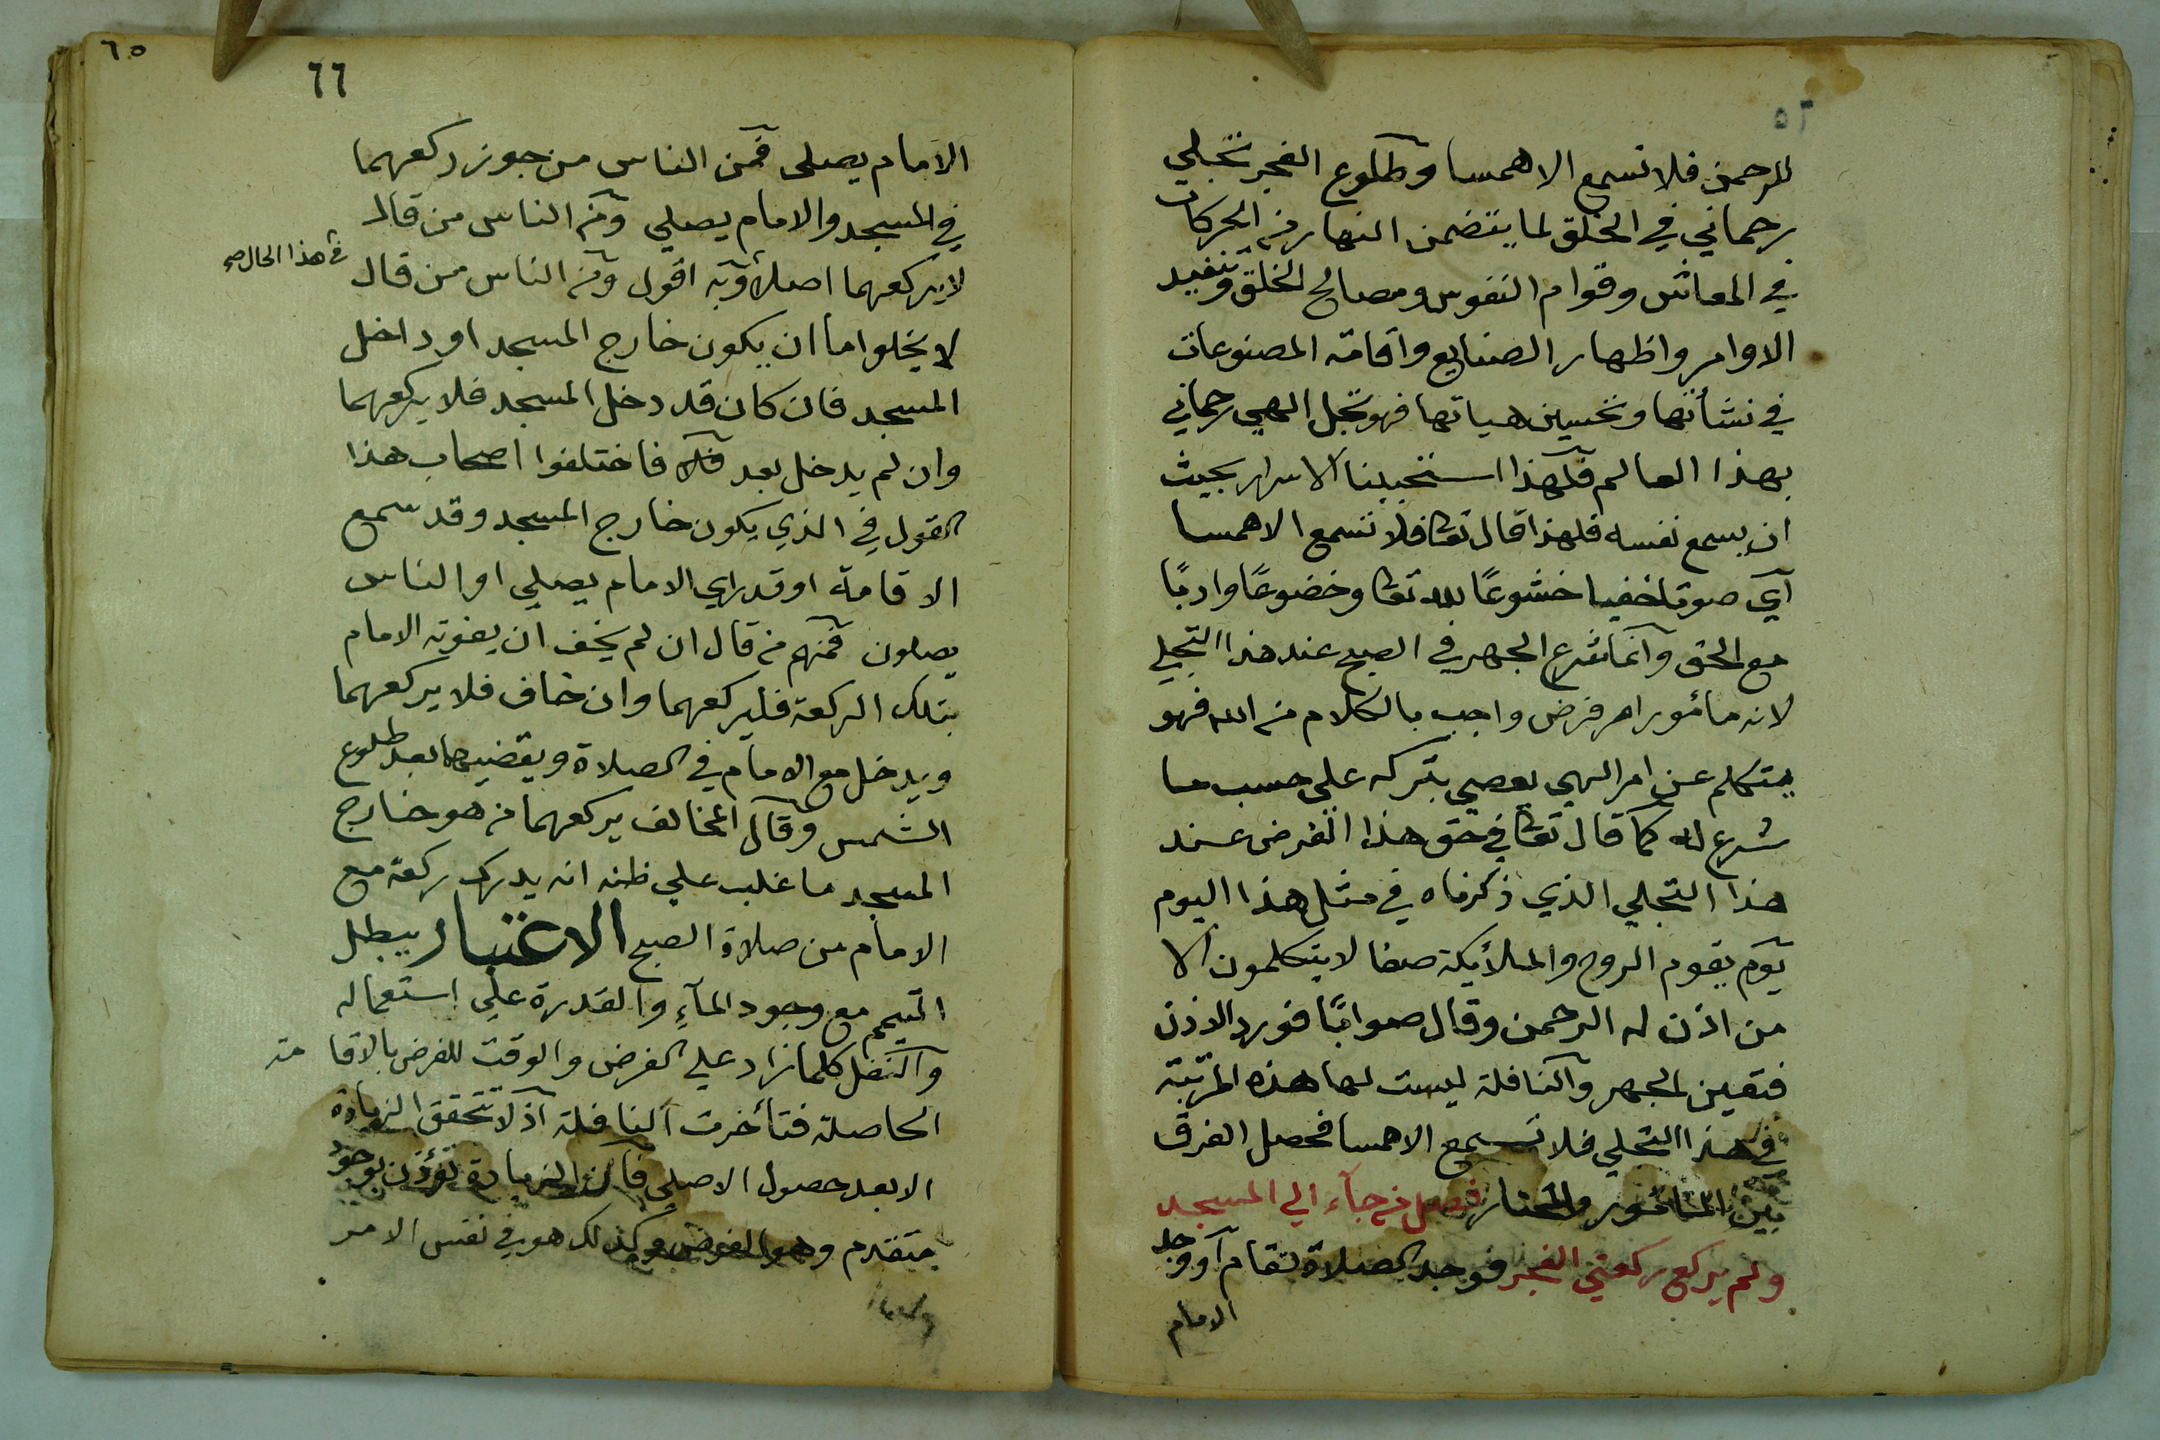 ٦٥
للرحمن فلا تسمع الا همسا وطلوع الفجر تجلي
رحماني في الخلق لما يتضمن النهار من الحركات
في المعاش وقوام النفوس ومصالح الخلق وتنفيد
الاوامر واظهار الصنايع واقامة المصنوعات
في نشأتها وتحسين هياتها فهو تجل الهي رحماني
بهذا العالم فلهذا استحببنا الاسرار بحيث
ان يسمع نفسه فلهذا قال تعا فلا تسمع الا همسا
اي صوتا خفيا خشوعًا لله تعا وخضوعًا وادبًا
مع الحق وانما شرع الجهر في الصبح عند هذا التجلي
لانه مأمور امر فرض واجب بالكلام من الله فهو
يتكلم عن امر الهي يعصي بتركه علي حسب ما
شرع له كما قال تعا في حق هذا الفرض عند
هذا التجلي الذي ذكرناه في مثل هذا اليوم
يوم يقوم الروح والملأيكة صفا لا يتكلمون الا
من اذن له الرحمن وقال صوابًا فورد الاذن
فتعين الجهر والنافلة ليست لها هذه المرتبة
في هذا التجلي فلا تسمع الا همسا فحصل الفرق
بين المأمور والمختار فصل من جآء الي المسجد
ولم يركع ركعتي الفجر فوجد الصلاة تقام او وجد
الامام
٦٥
٦٦
الامام يصلي فمن الناس من جوز ركعهما
في المسجد والامام يصلي ومن الناس من قال
لا يركعهما اصلا وبه اقول ومن الناس من قال
في هذا الحال صح
لا يخلوا اما ان يكون خارج المسجد او داخل
المسجد فان كان قد دخل المسجد فلا يركعهما
وان لم يدخل بعد فلا فاختلفوا اصحاب هذا
القول في الذي يكون خارج المسجد وقد سمع
الاقامة او قد راي الامام يصلي او الناس
يصلون فمنهم من قال ان لم يخف ان يفوته الامام
بتلك الركعة فليركعهما وان خاف فلا يركعهما
ويدخل مع الامام في الصلاة ويقضيهما بعد طلوع
الشمس وقال المخالف يركعهما من هو خارج
المسجد ما غلب علي ظنه انه يدرك ركعة مع
الامام من صلاة الصبح الاعتبار يبطل
التيمم مع وجود المآءِ والقدرة علي استعماله
والنفل كلما زاد علي الفرض والوقت للفرض بالاقامة
الحاصلة فتأخرت النافلة اذ لا تتحقق الزيادة
الا بعد حصول الاصلي فان الزيادة تؤذن بوجود
متقدم وهو الفرض وكذلك هو في نفس الامر